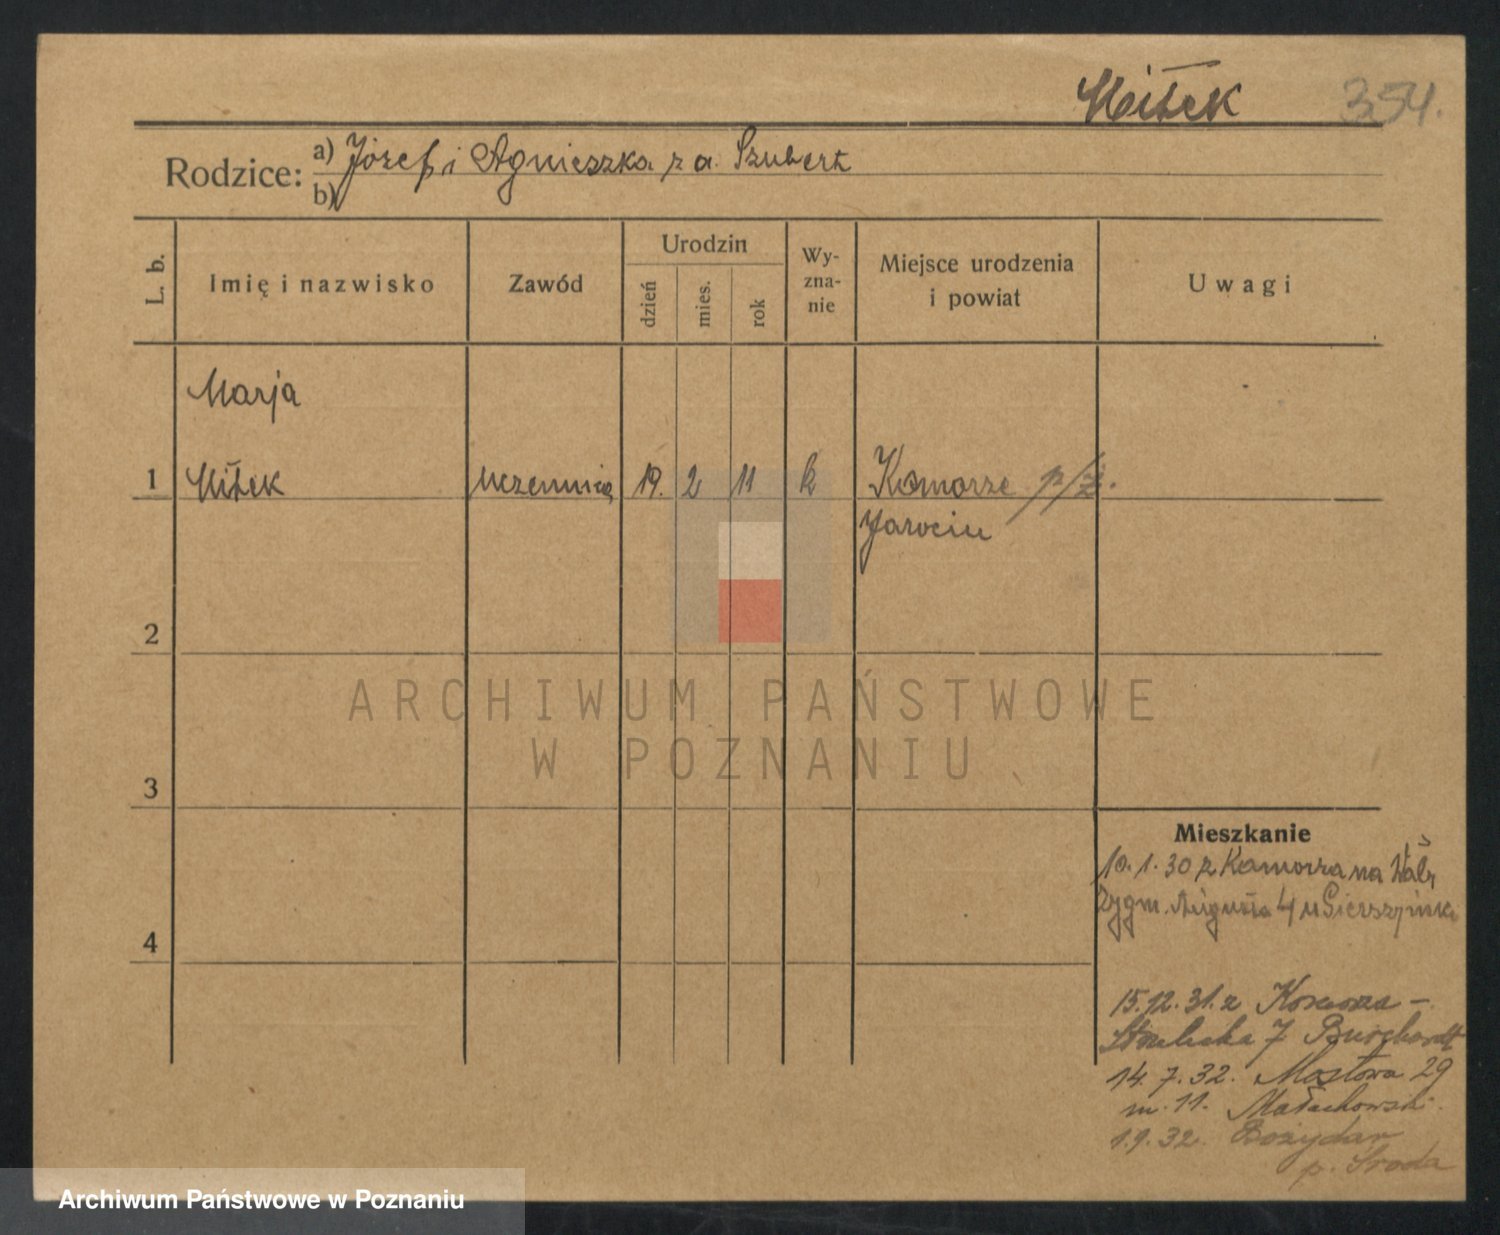 Witek 354.
Rodzice: a) Józef i Agnieszka z d. Szubert
b)
L. b. Imię i nazwisko Zawód Urodzin dzień mies. rok Wy-zna-nie Miejsce urodzenia i powiat Uwagi
Marja
1 Witek uczennica 19. 2 11 k Komorze p/ż.
Jarocin
2
ARCHIWUM PAŃSTWOWE
W POZNANIU
3
Mieszkanie
10.1.30 z Komorza na Wały
Zygm. Augusta 4 u
4
15.12.31. z Komorza –
7 Burchardt
14.7.32. Mostowa 29
m. 11. Małachowski.
1.9.32. Bożydar
p. Środa
Archiwum Państwowe w Poznaniu